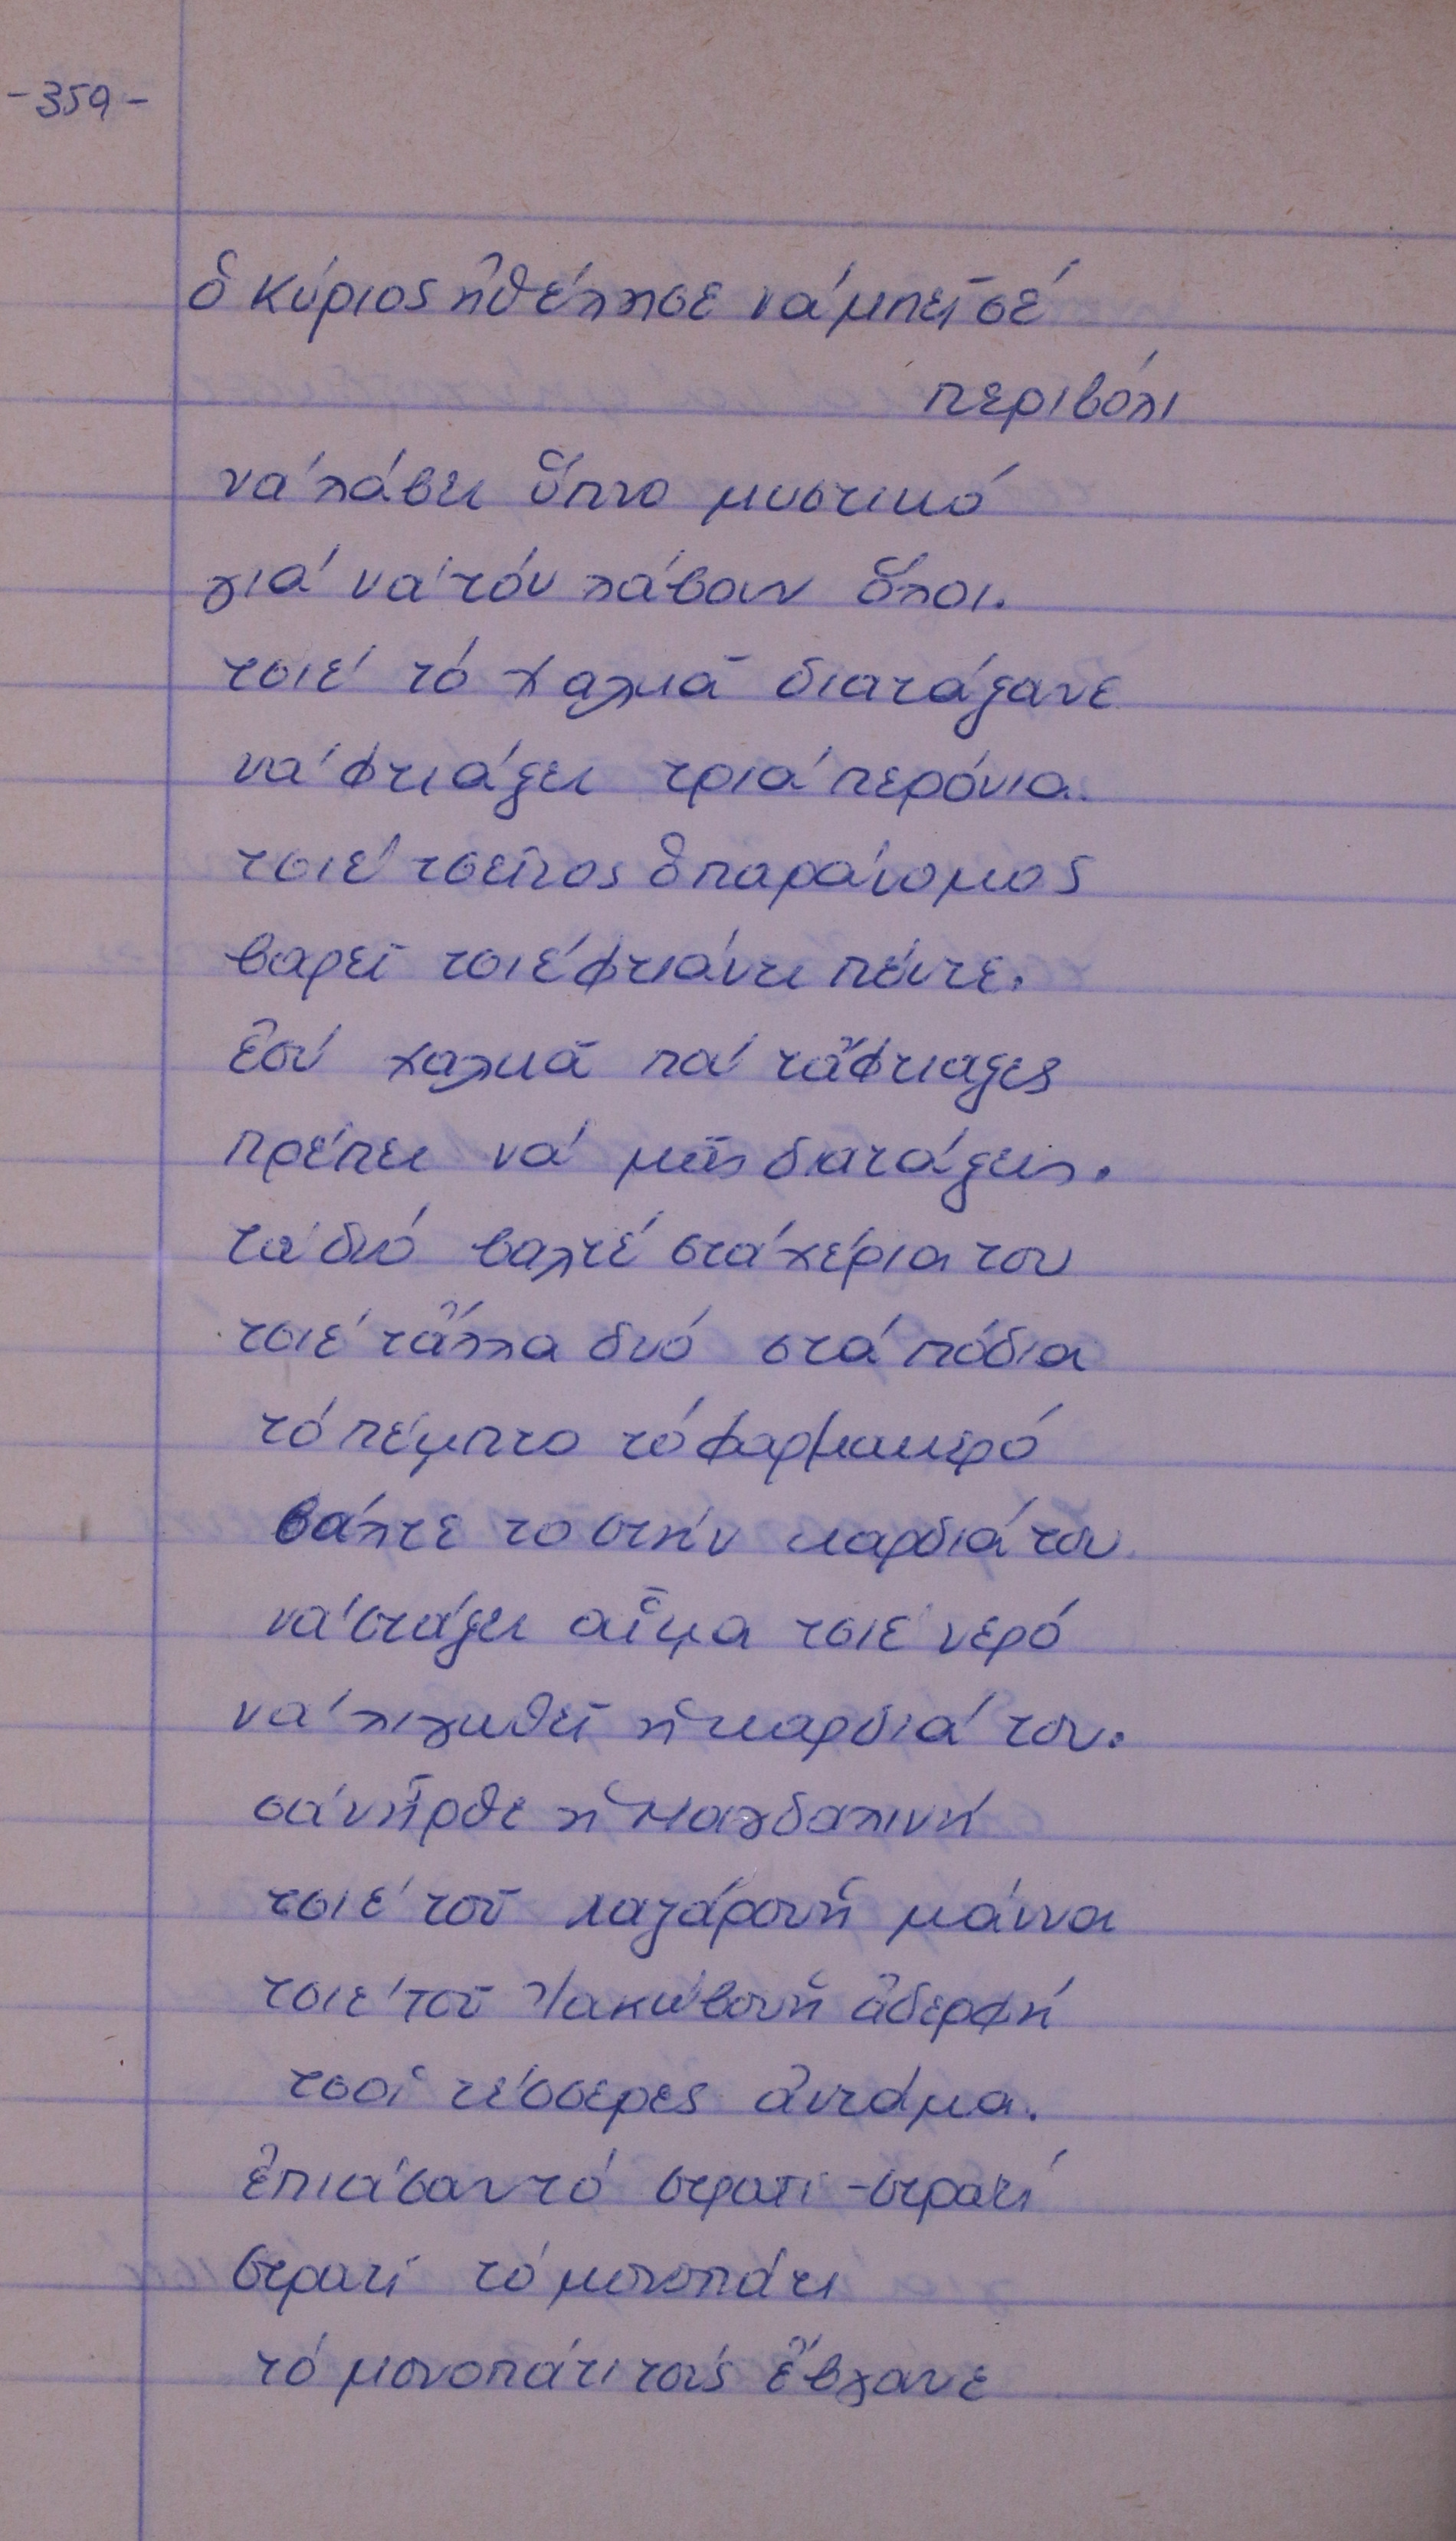 -359-
ὁ κύριος ἠθέλησε νά μπεῖ σέ
περιβόλι
νά λάβει δῖπνο μυστικό
γιά νά τόν λάβουν ὅλοι.
τσιέ τό χαλκιᾶ διατάξανε
νά φτιάξει τριά περόνια.
τσιέ τσεῖνος ὁ παράνομος
βαρεῖ τσιέ φτιάνει πέντε.
ἐσύ χαλκιᾶ πού τἄφτιαξες
πρέπει νά μᾶς διατάξεις.
τά δυό βαλτέ στά χέρια του
τσιέ τἄλλα δυό στά πόδια
τό πέμπτο τό φαρμακερό
βάλτε το στήν καρδιά του
νά στάξει αἷμα τσιέ νερό
νά λιγωθεῖ ἡ καρδιά του.
σάν ἦρθε ἡ Μαγδαλινή
τσιέ τοῦ λαζάρου ἡ μάννα
τσιέ τοῦ Ἰακώβου ἡ ἀδερφή
τσοί τέσσερες ἀντάμα.
ἐπιάσαν τό στρατί-στρατί
στρατί τό μονοπάτι
τό μονοπάτι τούς ἔβγανε